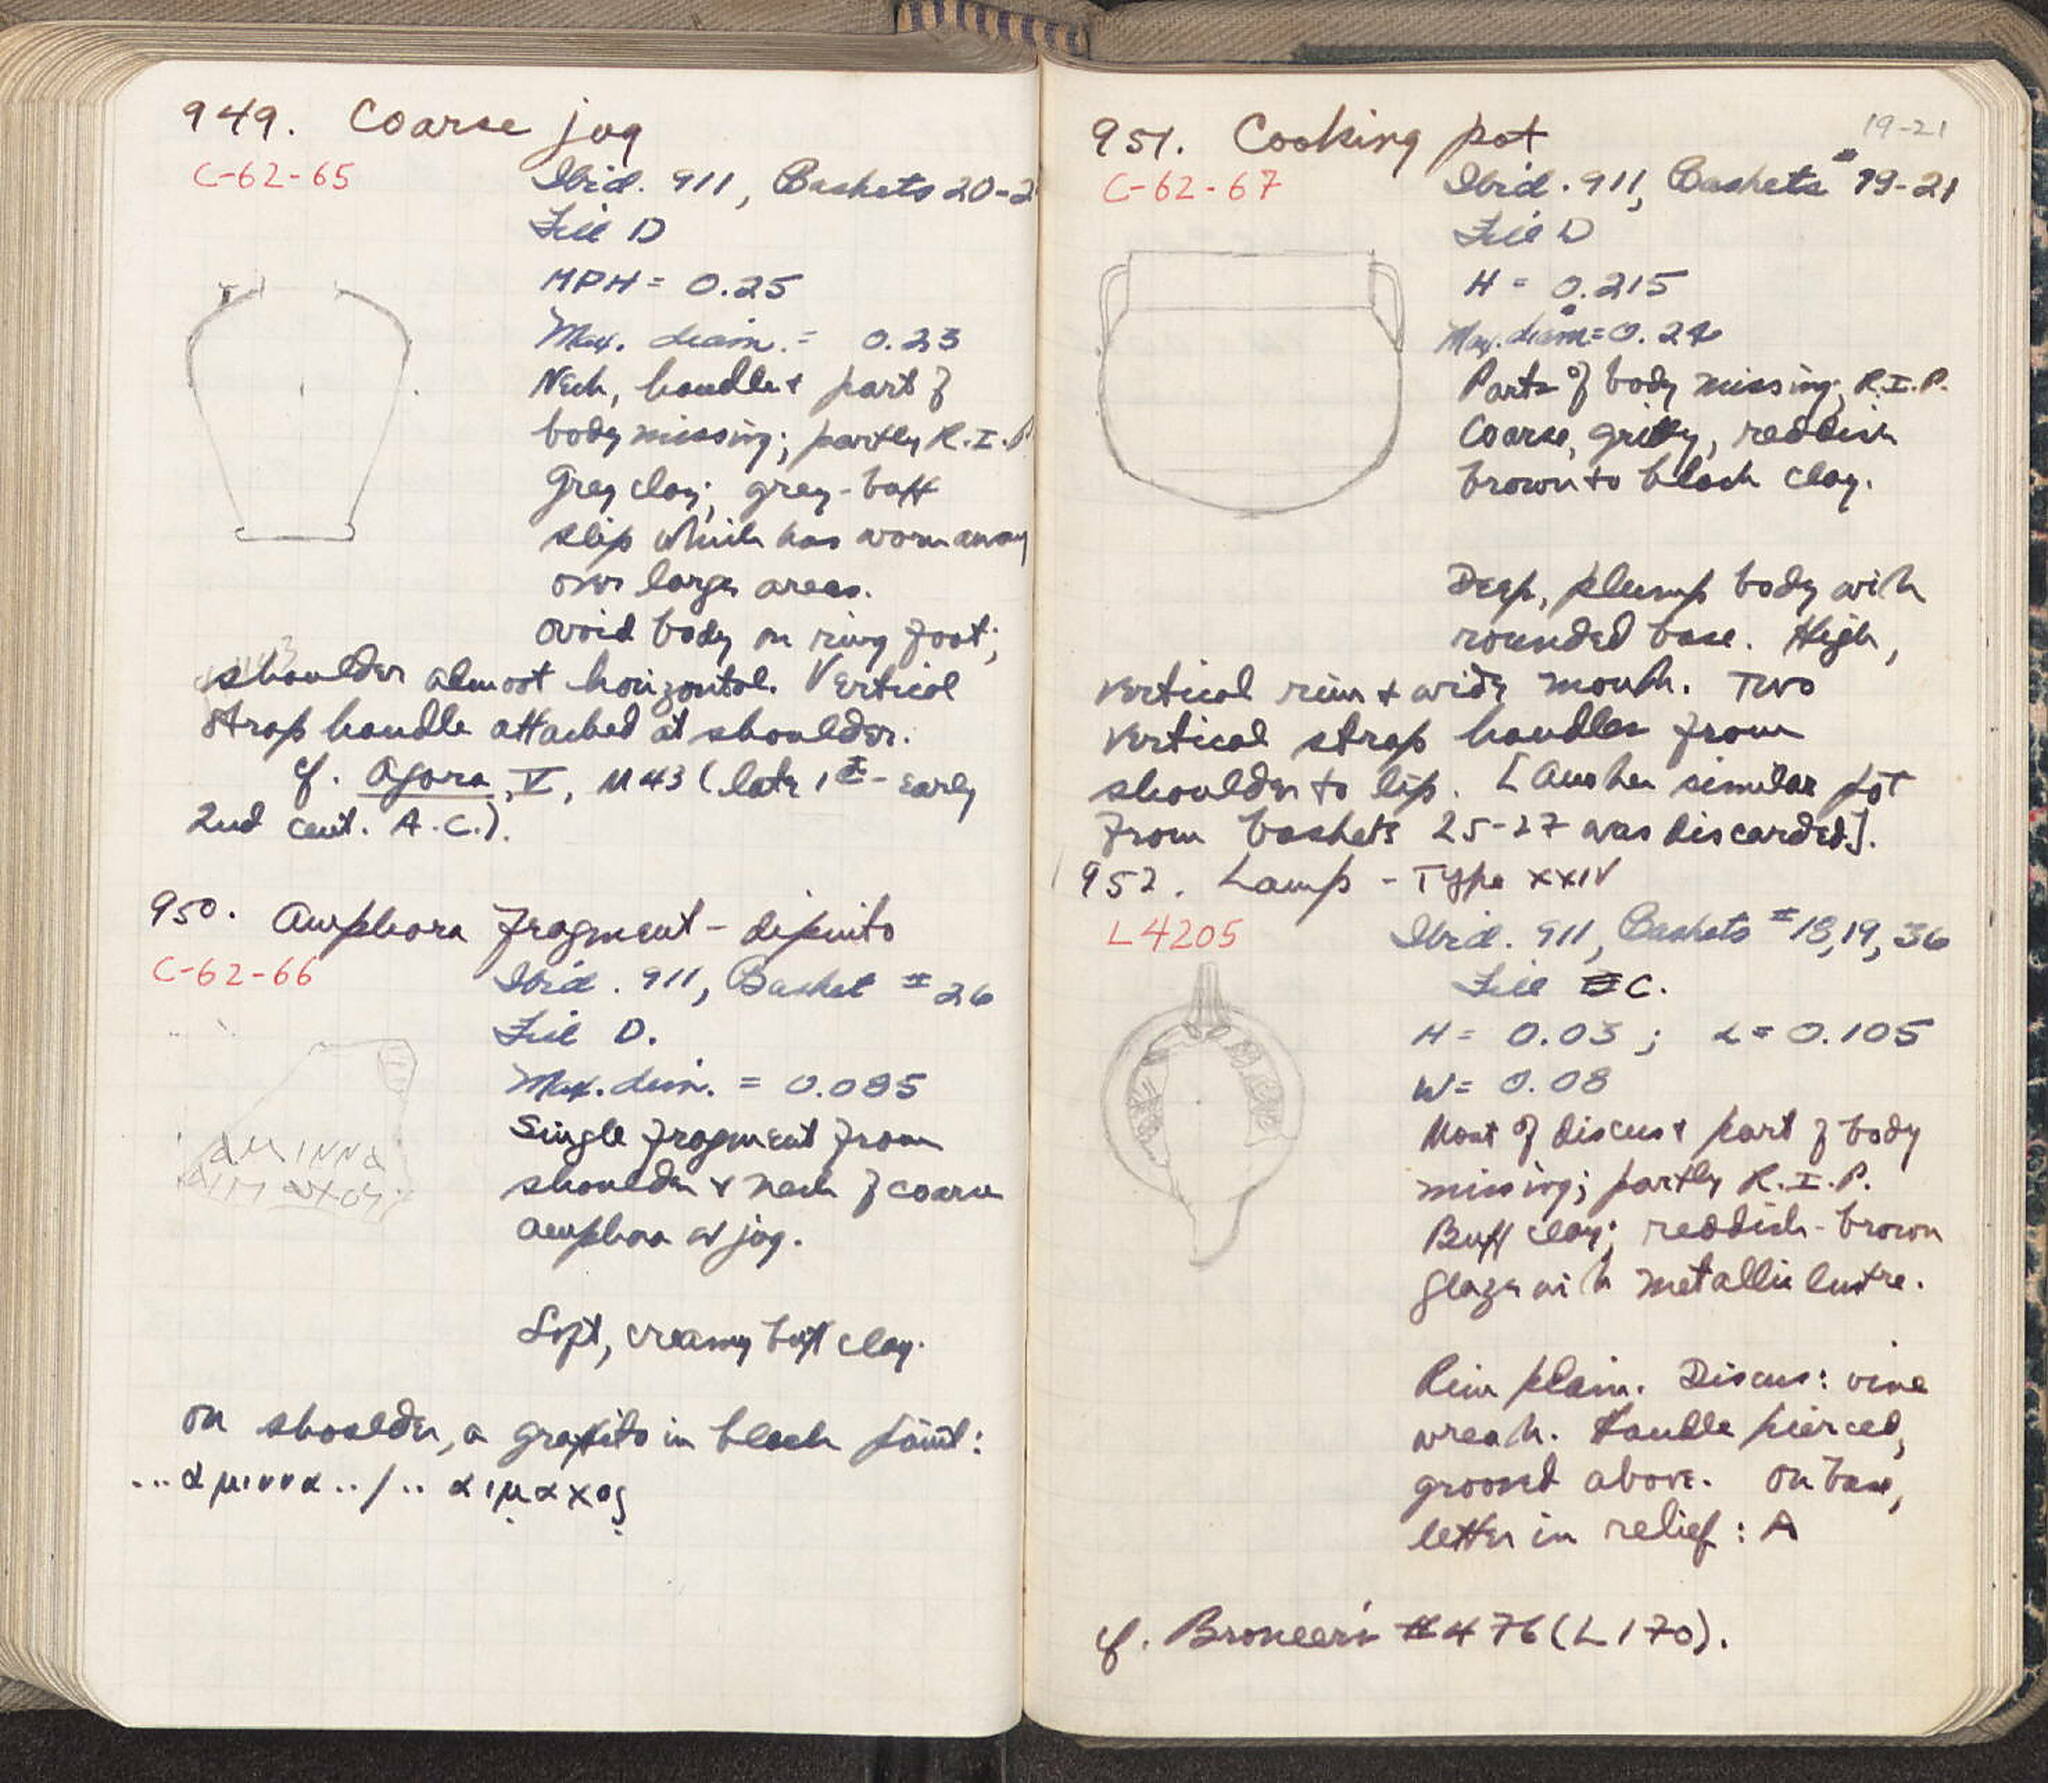 949. Coarse jug
C-62-65
Ibid. 911, Baskets 20-2
Fill D
MPH = 0.25
Max. diam. = 0.23
Neck, handle & part of
body missing; partly R.I.P.
Grey clay; grey-buff
slip which has worn away
over large areas.
Ovoid body on ring foot;
shoulder almost horizontal. Vertical
strap handle attached at shoulder.
cf. Agora, V, M43 (late 1st - early
2nd cent. A.C.).
950. Amphora fragment - dipinto
C-62-66
Ibid. 911, Basket # 26
Fill D.
Max. dim. = 0.085
Single fragment from
shoulder & neck of coarse
amphora or jug.
Soft, creamy buff clay.
On shoulder, a graffito in black paint:
...αμιννα../.. αιμ̣αχος̣
19-21
951. Cooking pot
C-62-67
Ibid. 911, Baskets # 19-21
Fill D
H = 0.215
Max. diam = 0.24
Parts of body missing; R.I.P.
Coarse, gritty, reddish
brown to black clay.
Deep, plump body with
rounded base. High,
vertical rim & wide mouth. Two
vertical strap handles from
shoulder to lip. [Another similar pot
from baskets 25-27 was discarded].
952. Lamp - Type XXIV
L4205
Ibid. 911, Baskets # 18, 19, 36
Fill C.
H = 0.03; L = 0.105
W = 0.08
Most of discus & part of body
missing; partly R.I.P.
Buff clay; reddish-brown
glaze with metallic lustre.
Rim plain. Discus: vine
wreath. Handle pierced,
grooved above. On base,
letter in relief: A
cf. Broneer's #476 (L 170).